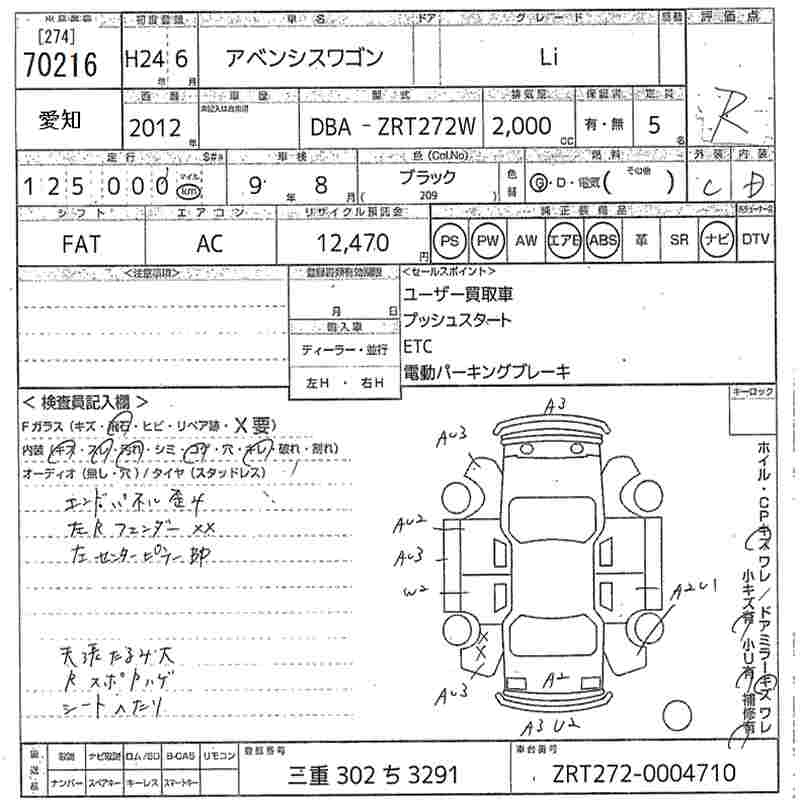 [274] 初度登録 車名 ドア グレード 評価点
70216 H24年 6月 アベンシスワゴン Li R
愛知 西暦 車歴 型式 排気量 保証書 定員
2012年 DBA - ZRT272W 2,000cc 有・無 5名
走行 車検 色(Col.No) 燃料 外装 内装
125000 マイル km 9年 8月 ブラック 209 色替 G・D・電気( その他 ) C D
シフト エアコン リサイクル預託金 純正装備品
FAT AC 12,470円 PS PW AW エアB ABS 革 SR ナビ DTV
<注意事項> 登録書類有効期限 <セールスポイント>
月 日 ユーザー買取車
輸入車 プッシュスタート
ディーラー・並行 ETC
左H・右H 電動パーキングブレーキ
<検査員記入欄> キーロック
Fガラス(キズ・飛石・ヒビ・リペア跡・X要)
内装(キズ・スレ・汚れ・シミ・コゲ・穴・キレ・破れ・割れ)
オーディオ(無し・穴)/タイヤ(スタッドレス)
エンドパネル歪み
左Rフェンダー XX
左センターピラー
天張たるみ大
Rスポ ハゲ
シートへたり
A3
AU3
AU2
AU3
W2
A2U1
X
X
AU3
A2
A3 U2
ホイル・CPキズワレ/ドアミラーキズワレ
小キズ有 小U有 補修有
後送品 取説 ナビ取説 ロム/SD B-CAS リモコン 登録番号 車台番号
ナンバー スペアキー キーレス スマートキー 三重 302 ち 3291 ZRT272-0004710